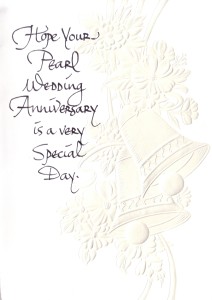 Hope Your
Pearl
Wedding
Anniversary
is a very
Special
Day.